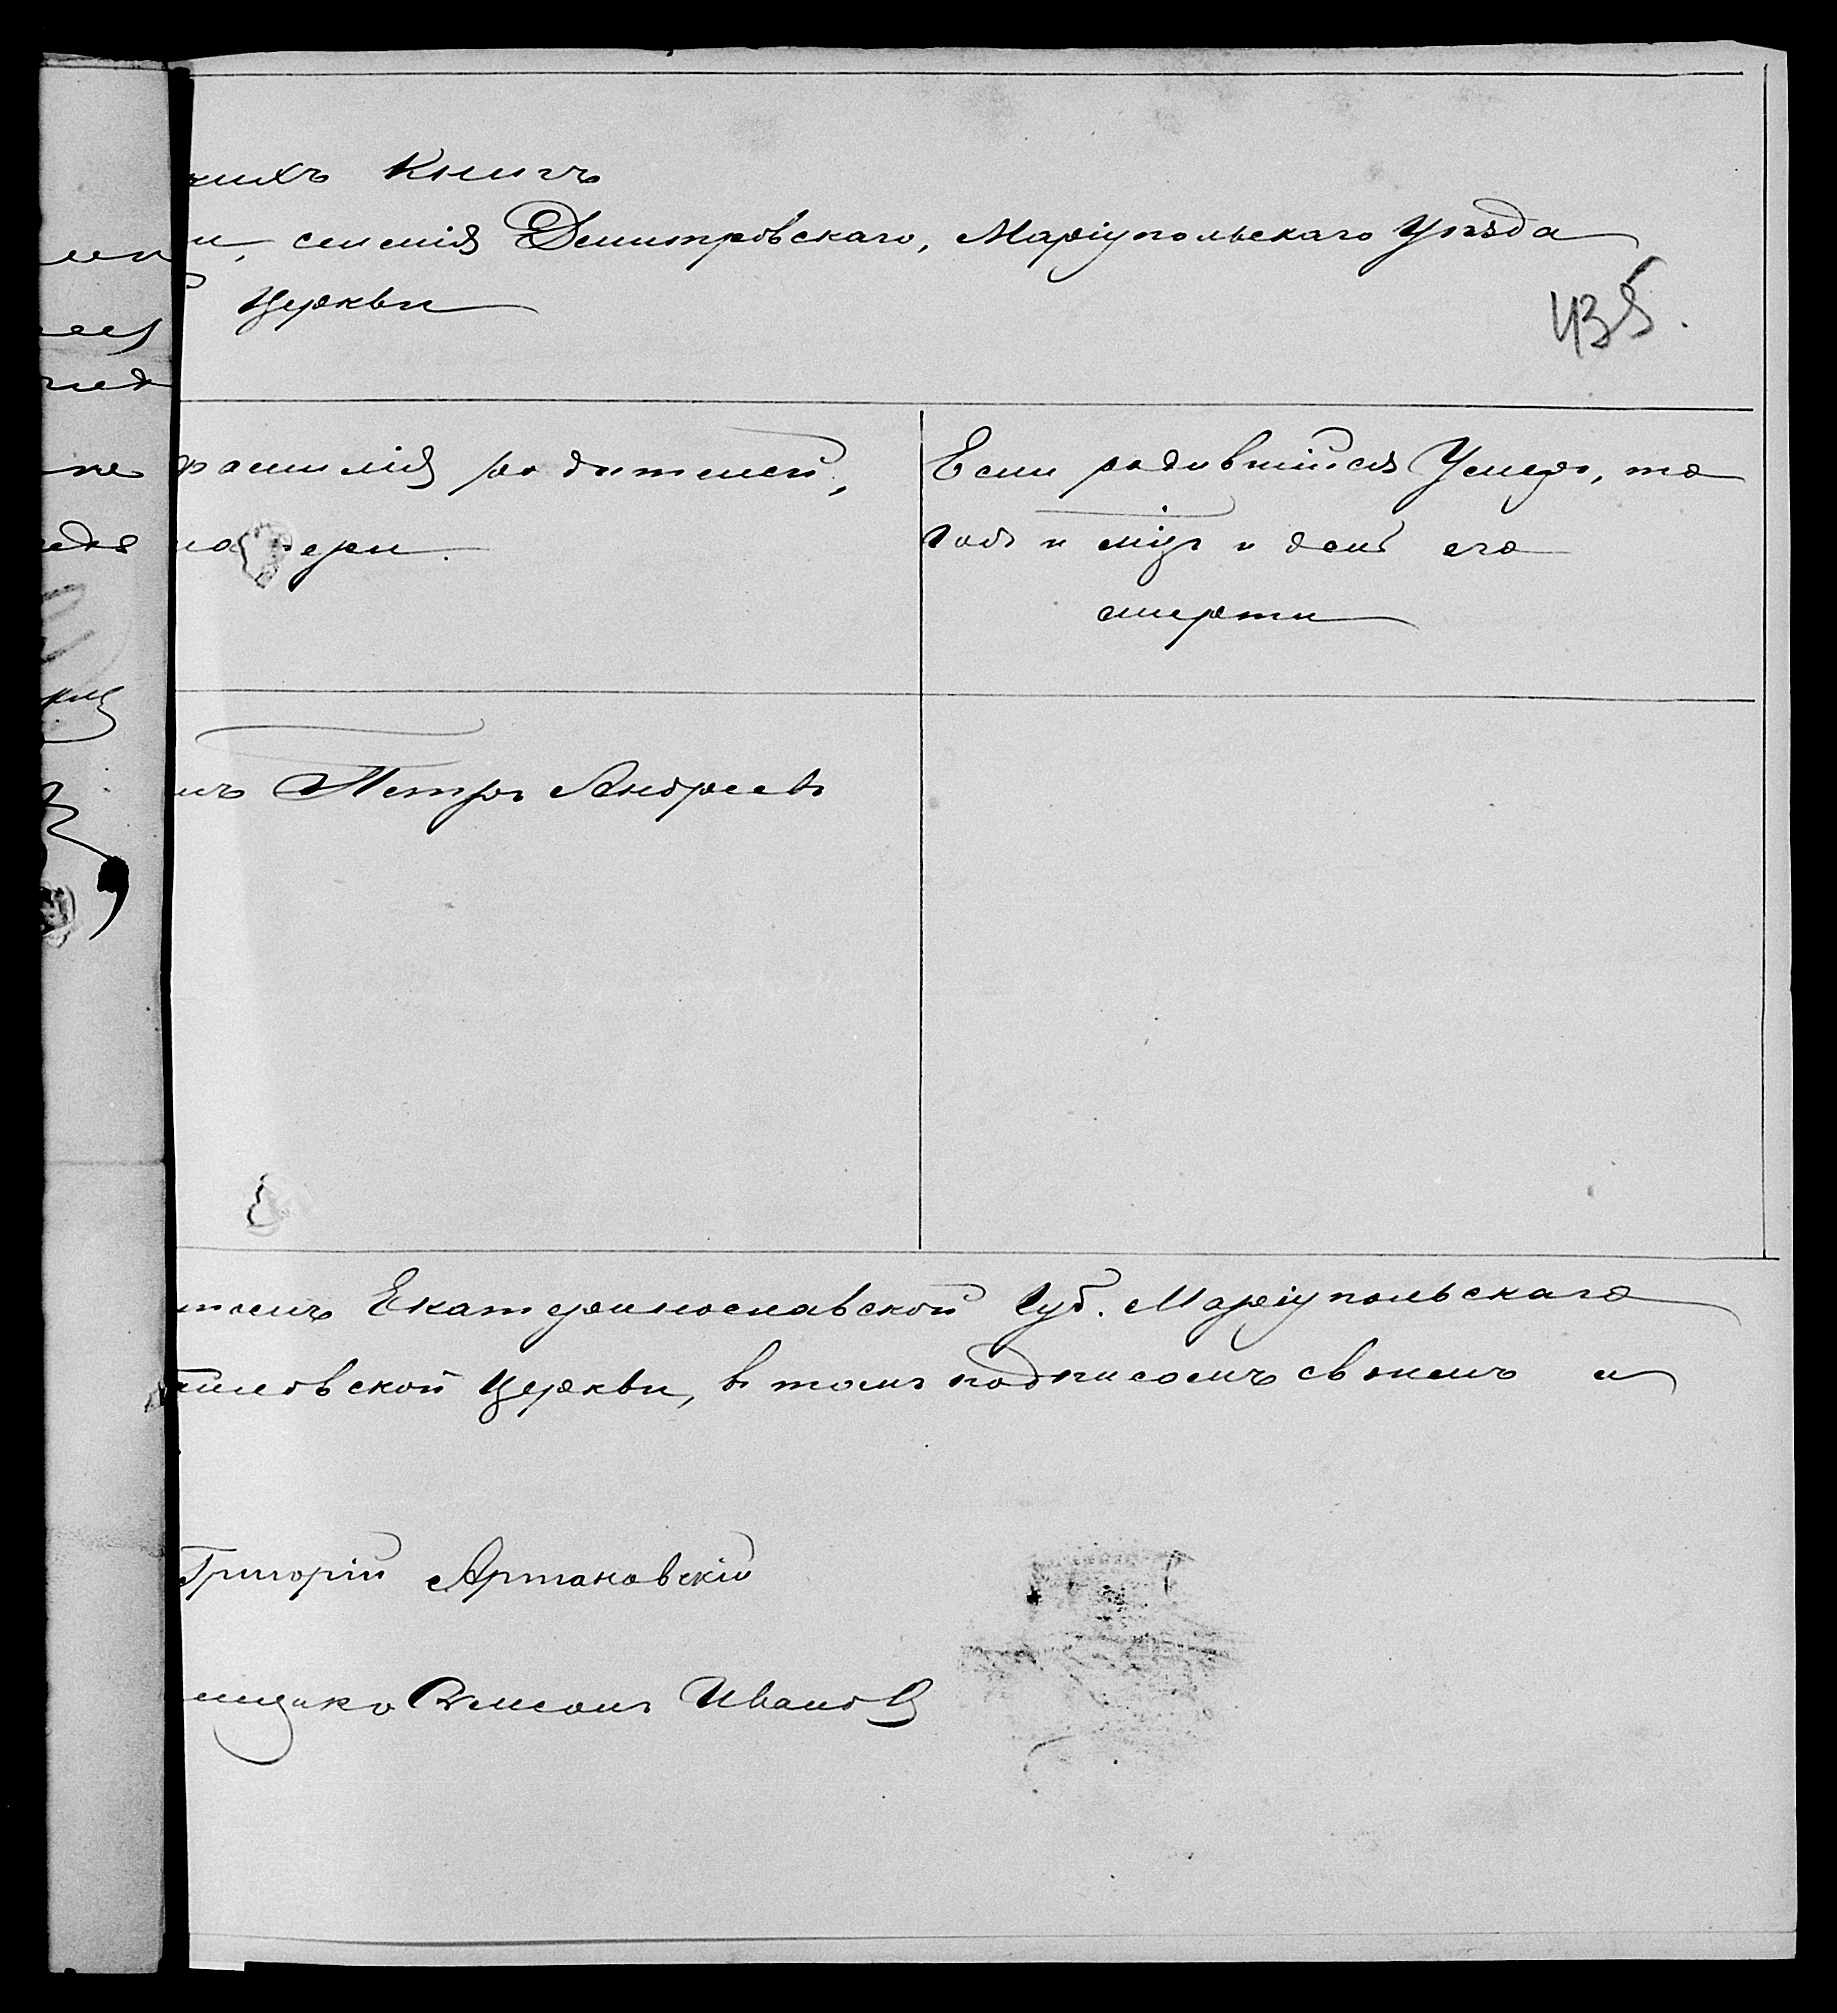 Книгъ
селенія Димитровскаго, Маріупольскаго Уѣзда
Церкви
435.
фамилія родителей,
матери.
Если родившійся Умеръ, то
годъ и мцъ и день его
смерти
Петръ Андреевъ
Екатеринославской Губ. Маріупольскаго
Церкви, въ томъ подписомъ своимъ и
Григорій Артаковскій
Симеонъ Ивановъ